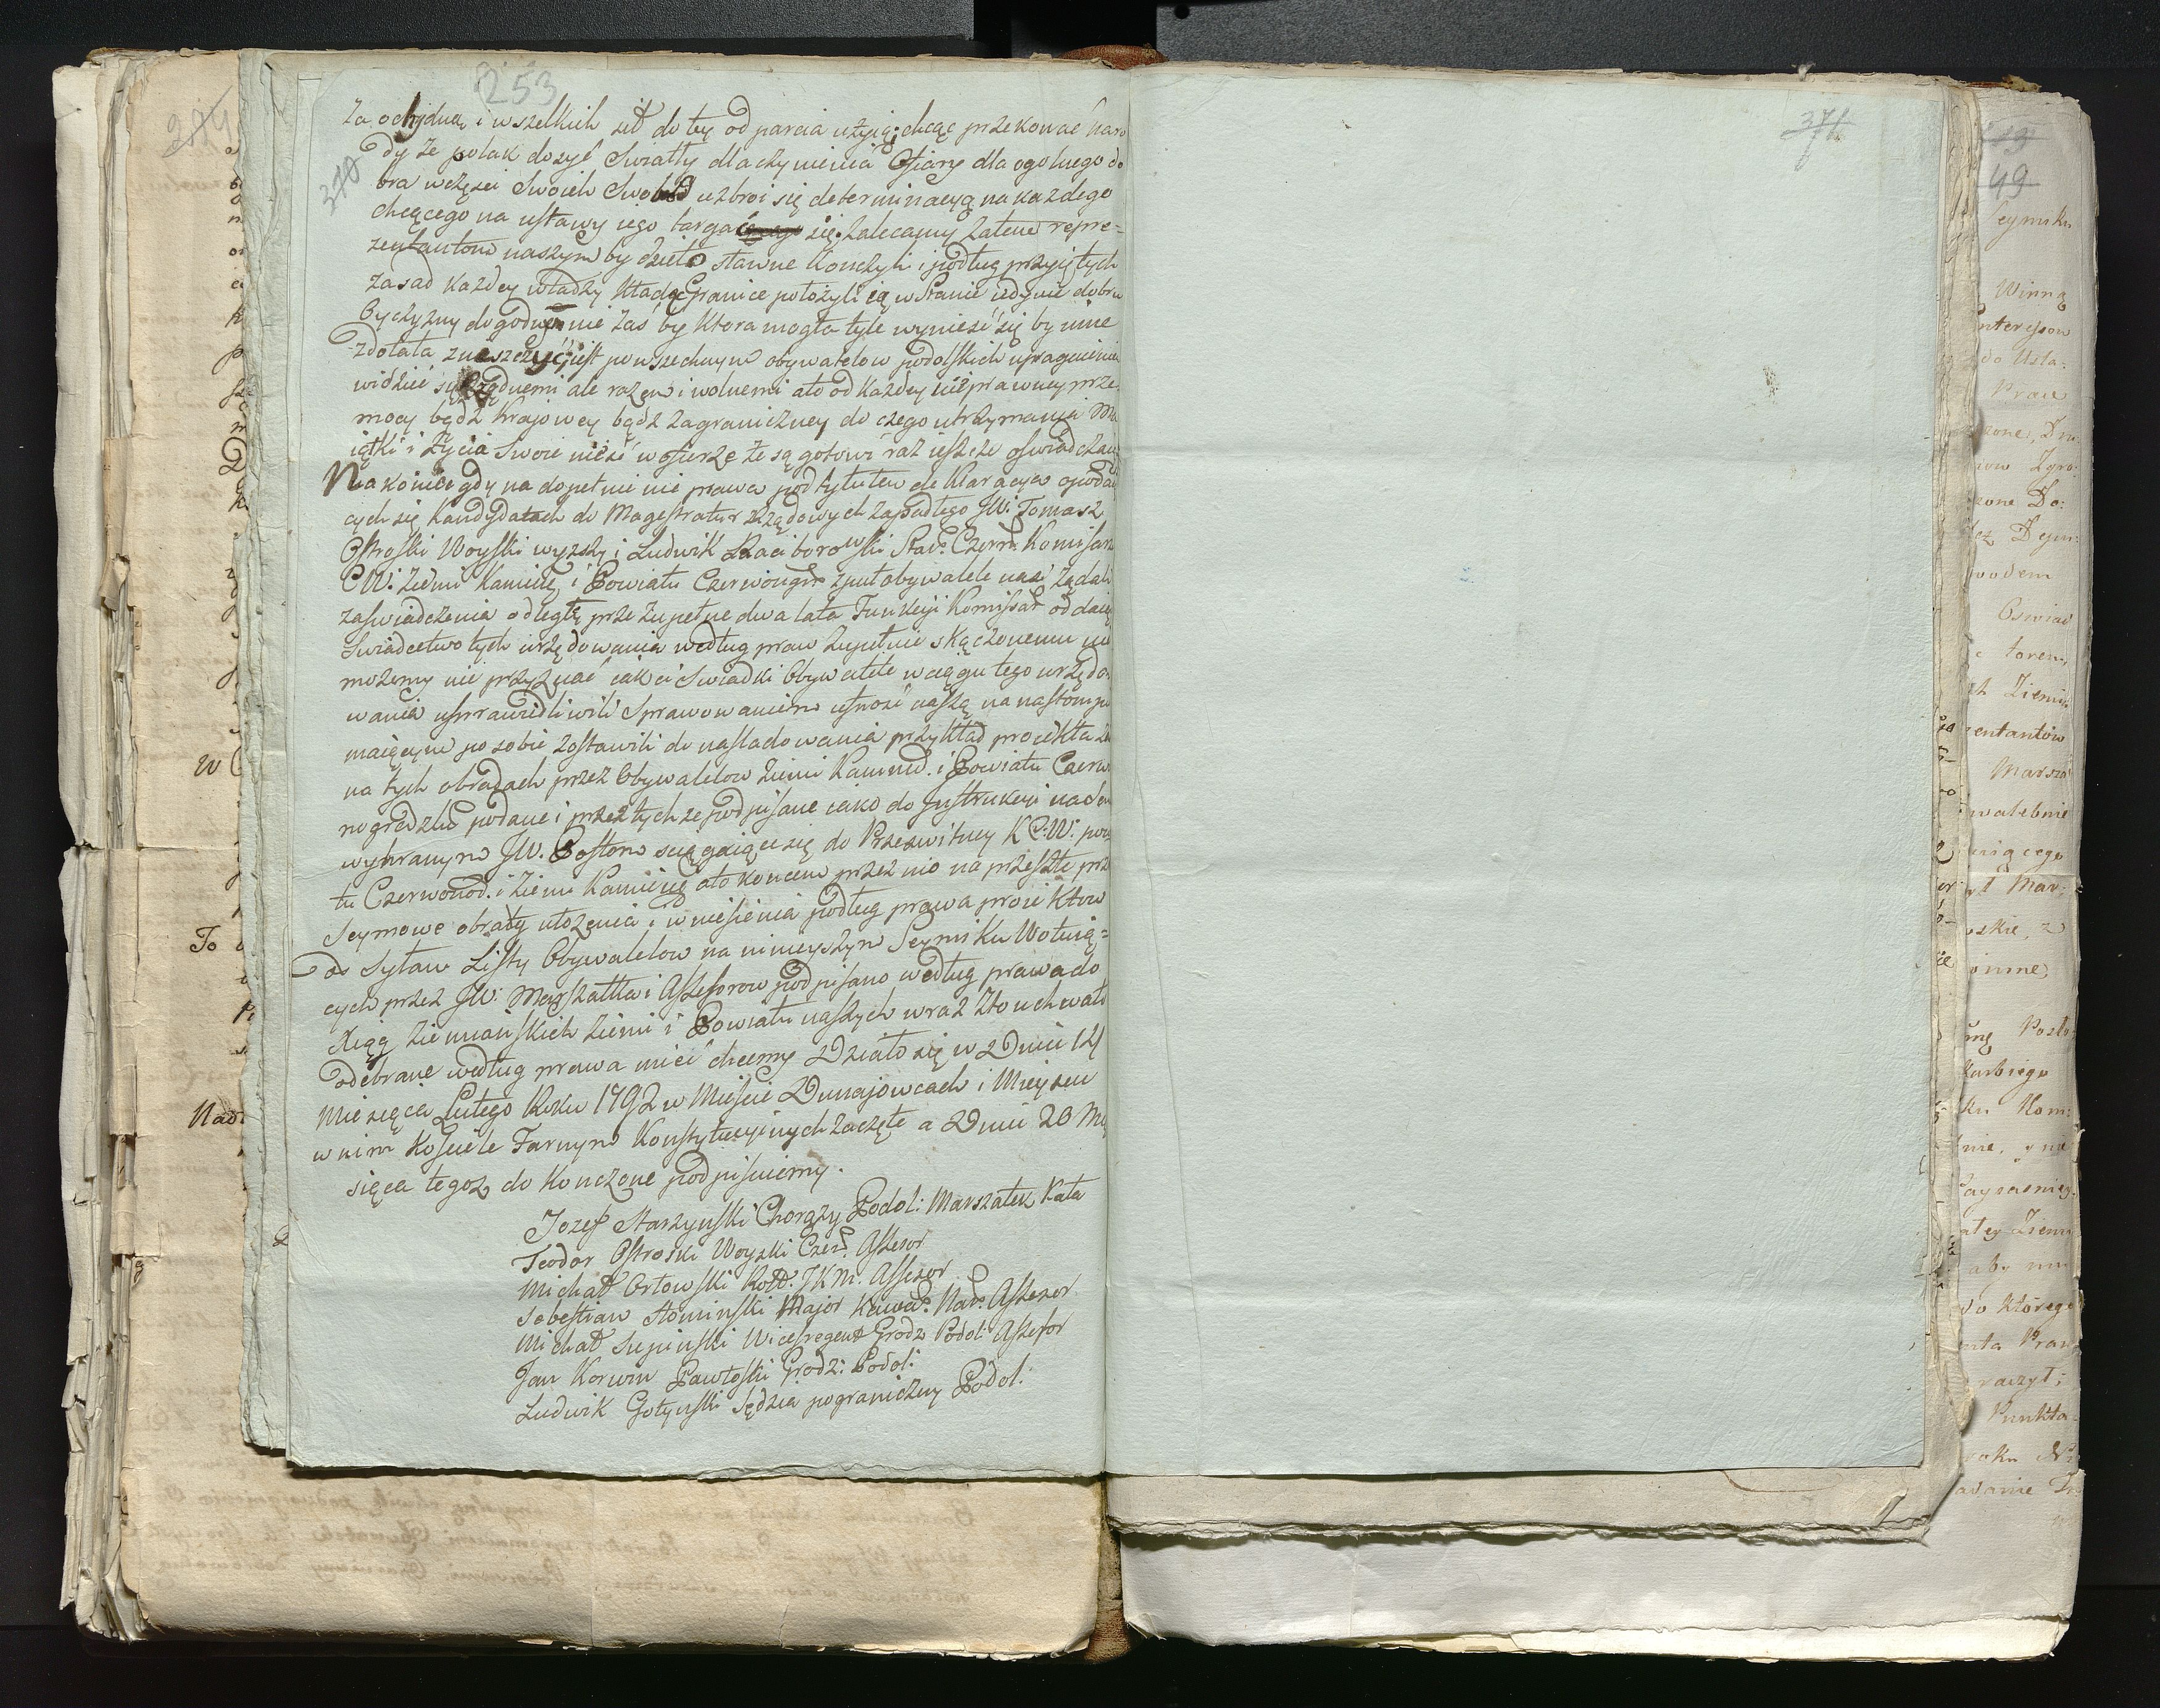 253
370
za ochydną i wszelkich sił do tey odparcia użyią; chcąc przekonać naro
dy że polak dosyć Swiatły dla czynienia Ofiary dla ogolnego do
bra wczęsci Swoich Swobod uzbroi się determinacyą na każdego
chcącego na ustawy iego targać się. Zalecamy zatem repre=
zentantom naszym by dzieło sławne kończyli i podług przyiętych
zasad każdey władzy kładąc Granice położyli ią w Stanie iedynie dobru
Oyczyzny dogodnym nie zaś by ktora mogła tyle wynieść się by inne
zdołała zniszczyć; iest powszechnym obywatelow podolskich upragnieniem
widzieć się rządnemi ale razem i wolnemi a to od każdey nieprawney prze
mocy bądź Krajowey bądź zagraniczney do czego utrzymania Ma
iątki i życia Swoie nieść w ofierze że są gotowi raz ieszcze oswiadczaią
Nakoniec gdy na dopełnienie prawa pod tytułem deklaracya o poda
cych się kandydatach do Magestratur Rządowych zapadłego JW: Tomasz
Ostroski Woyski wyższy i Ludwik Raciborowski Staro: Czerw. Komisarz
C W: Ziemi Kamień i Powiatu Czerwonogr: współobywatele nasi żądali
zaswiadczenia odległey przez zupełne dwa lata Funkcyi Komissar: oddaiąc
Swiadectwo tych urzędowania według praw zupełnie skączonemu nie
możemy nie przyznać iak ci Swiadki Obywatele w ciągu tego urzędo
wania usprawiedliwili Sprawowaniem ufność naszą na nastompu
maiącym po sobie zostawili do nasladowania przykład proiekta ze
na tych obradach przez Obywatelow ziemi Kamnie. i Powiatu Czerwo
nogrodzk: podane i przez tychże podpisane iako do Instrukcyi nadan
wybranym JW. Posłom sciągaiące się do Prześwitney K C: W: powia
tu Czerwonod. i Ziemi Kamieniec a to koncem przez nio na przeszłe prz
Seymowe obrady ułożenia i wniesienia podług prawa proiektow
do Sytaw Listy Obywatelow na ninieyszym Seymiku Wotuią=
cych przez JW: Marszałka i Assesorow podpisano według prawa do
Xiąg Ziemiańskich ziemi i Powiatu naszych wraz z to uchwało
odebrane według prawa mieć chcemy Działo się w Dniu 14
Miesiąca Lutego Roku 1792 w Mieście Dunajowcach i Mieyscu
w nim Kościele Farnym Konstytucyinych zaczęte a Dniu 20 Mie
siąca tegoż do kończone podpisuiemy.
Jozef Starzynski Chorąży Podol: Marszałek
Teodor Ostroski Woyski Czer. Assesor
Michał Orłowski Rott. JKM. Assesor
Sebestian Słominski Major Kawa: Naro: Assesor
Michał Supinski Wicesregent Grodz Podol: Assesor
Jan Korwin Pawłoski Grodz: Podol:
Ludwik Gołynski Sędzia pograniczny Podol:
371
49
Seymiku
Winną
Interessow
do Usta:
Praw
zone Do:
wodem
Oswiad
torem
entantów
Marsza
walebnie
Mar:
skie, z
Posło:
Kom:
do którego
Punkta